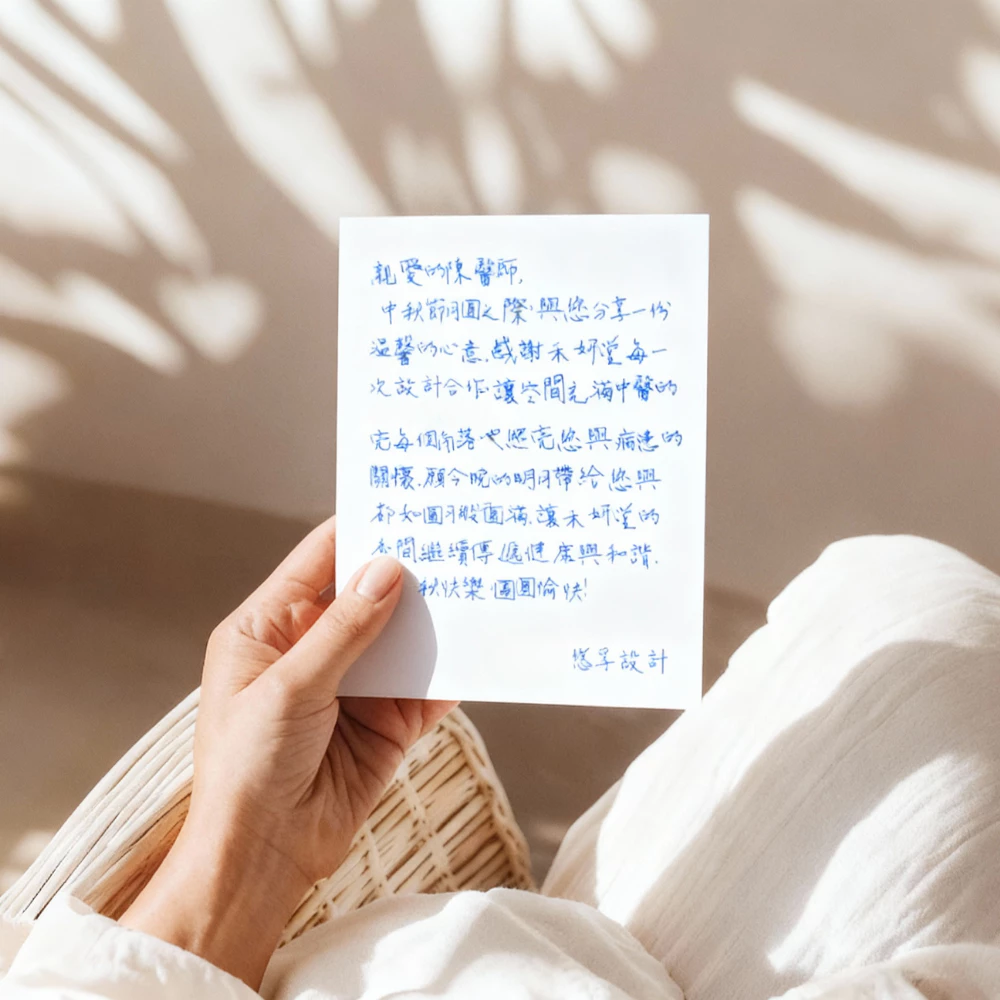 親愛的陳醫師,
中秋節月圓之際,與您分享一份
溫馨的心意.感謝禾妍堂每一
次設計合作,讓空間充滿中醫的
完每個角落,也照亮您與病患的
關懷.願今晚的明月帶給您與
都如圓月般圓滿.讓禾妍堂的
空間繼續傳遞健康與和諧.
秋快樂,團圓愉快!
悠孚設計